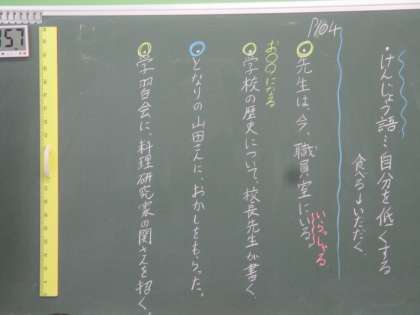 ・けんじょう語…自分を低くする
食べる→いただく
P104
先生は、今、職員室にいる。
いらっしゃる
お〇〇になる
学校の歴史について、校長先生が書く。
となりの山田さんに、おかしをもらった。
学習会に、料理研究家の関さんを招く。
5.7